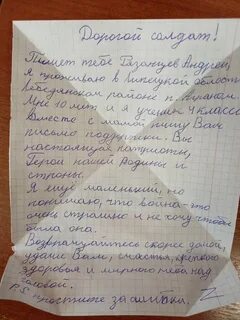 Дорогой солдат!
Пишет тебе Казанцев Андрей,
я проживаю в Липецкой области
Лебедянском районе п.
Мне 10 лет и я ученик 4 класса
Вместе с мамой пишу Вам
письмо поддержки. Вы
настоящие патриоты,
Герои нашей Родины и
страны.
Я ещё маленький, но
понимаю, что война-это
очень страшно и не хочу чтобы
была она.
Возвращайтесь скорее домой,
удачи Вам, счастья, крепкого
здоровья и мирного неба над
головой.
P.S простите за ошибки. Z